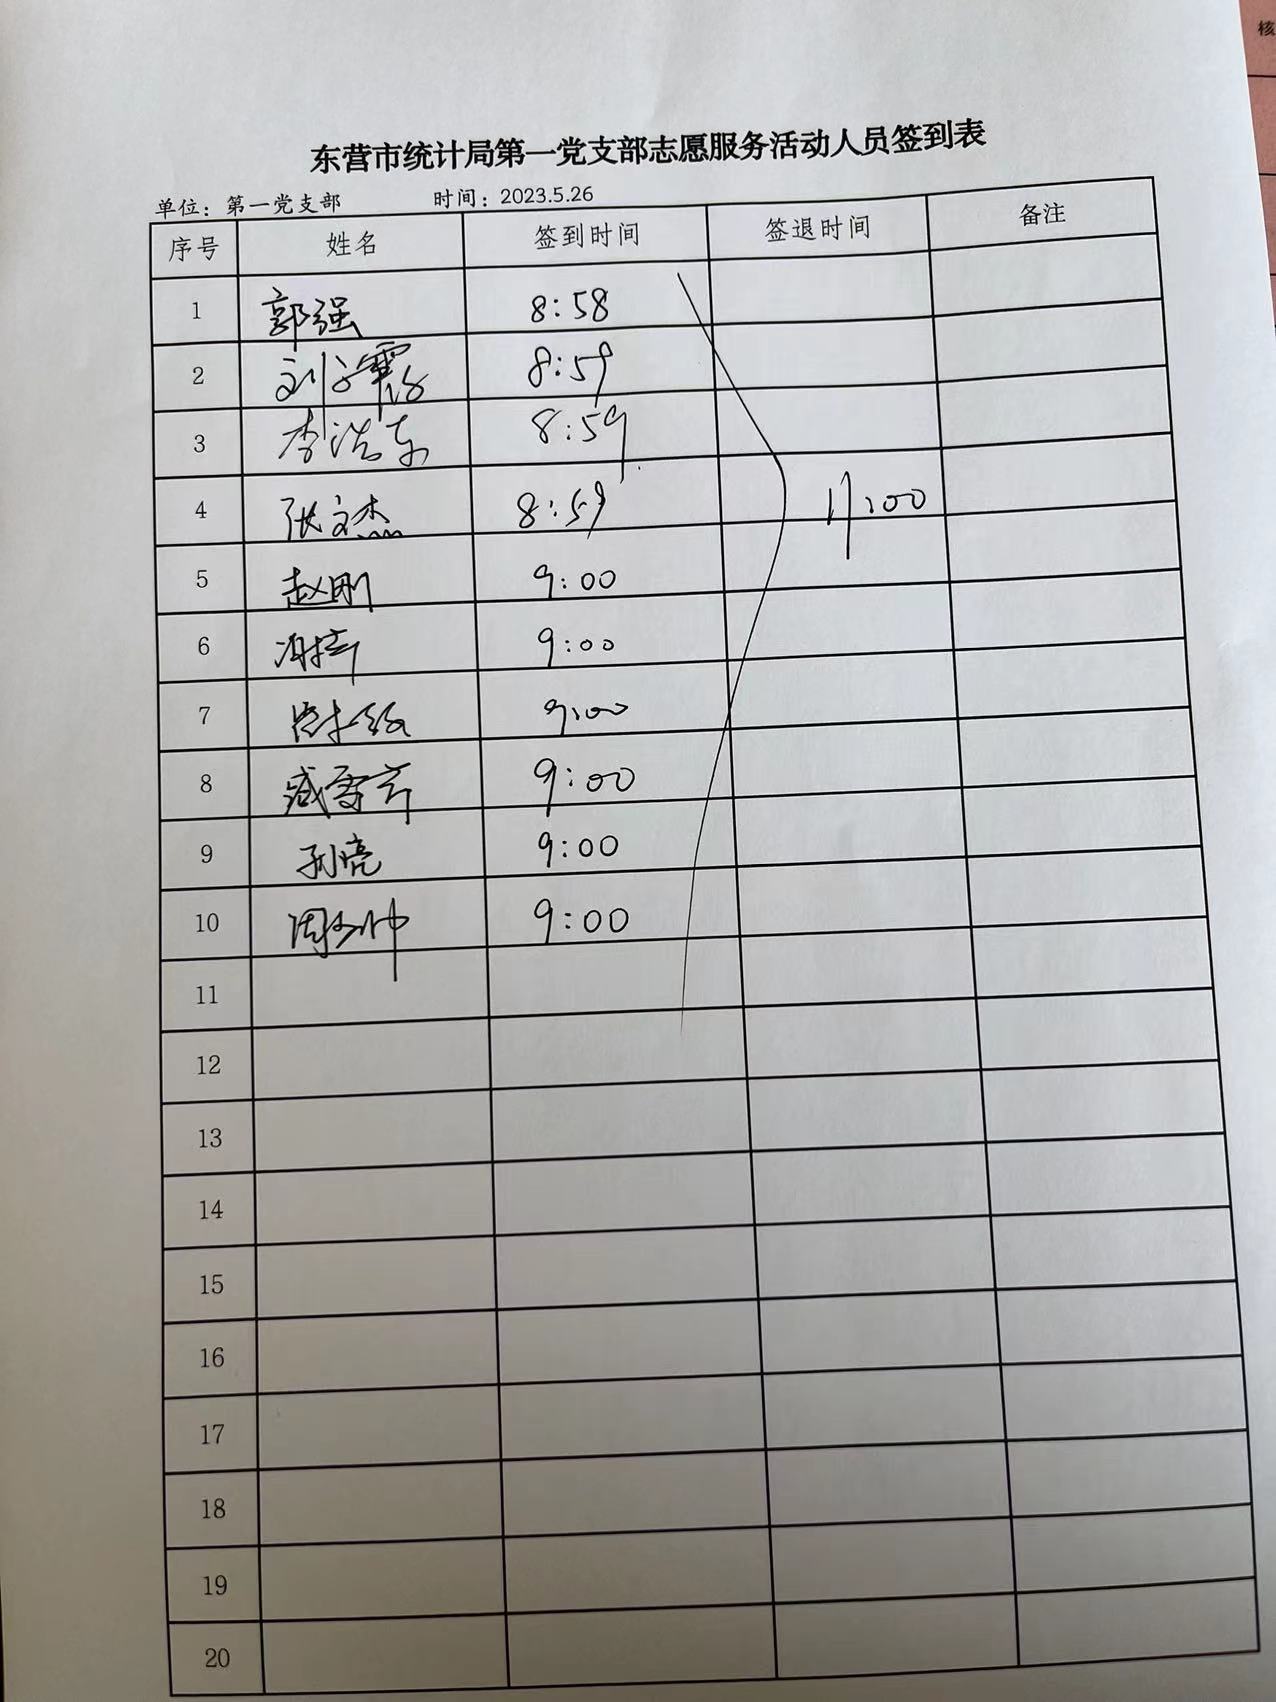 核
东营市统计局第一党支部志愿服务活动人员签到表
单位：第一党支部 时间：2023.5.26
序号 姓名 签到时间 签退时间 备注
1 郭强 8:58
2 刘 8:59
3 李浩东 8:59
4 张文杰 8:59 11:00
5 赵刚 9:00
6 9:00
7 9:00
8 臧雪 9:00
9 孙亮 9:00
10 周少帅 9:00
11
12
13
14
15
16
17
18
19
20